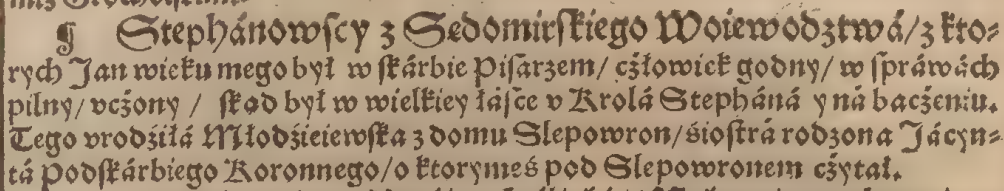 ¶ Stephánowſcy z Sędomirſkiego Woiewodztwá/ z kto⸗
rych Jan wieku mego był w ſkárbie Piſarzem/ człowiek godny/ w ſpráwách
pilny/ vcżony / ſkąd był w wielkiey łáſce v Krolá Stepháná y ná bacżeniu.
Tego vrodźiłá Młodźieiewſka z domu Slepowron/ śioſtrá rodzona Jácyn⸗
tá Podſkárbiego Koronnego/ o ktorymeś pod Slepowronem cżytał.